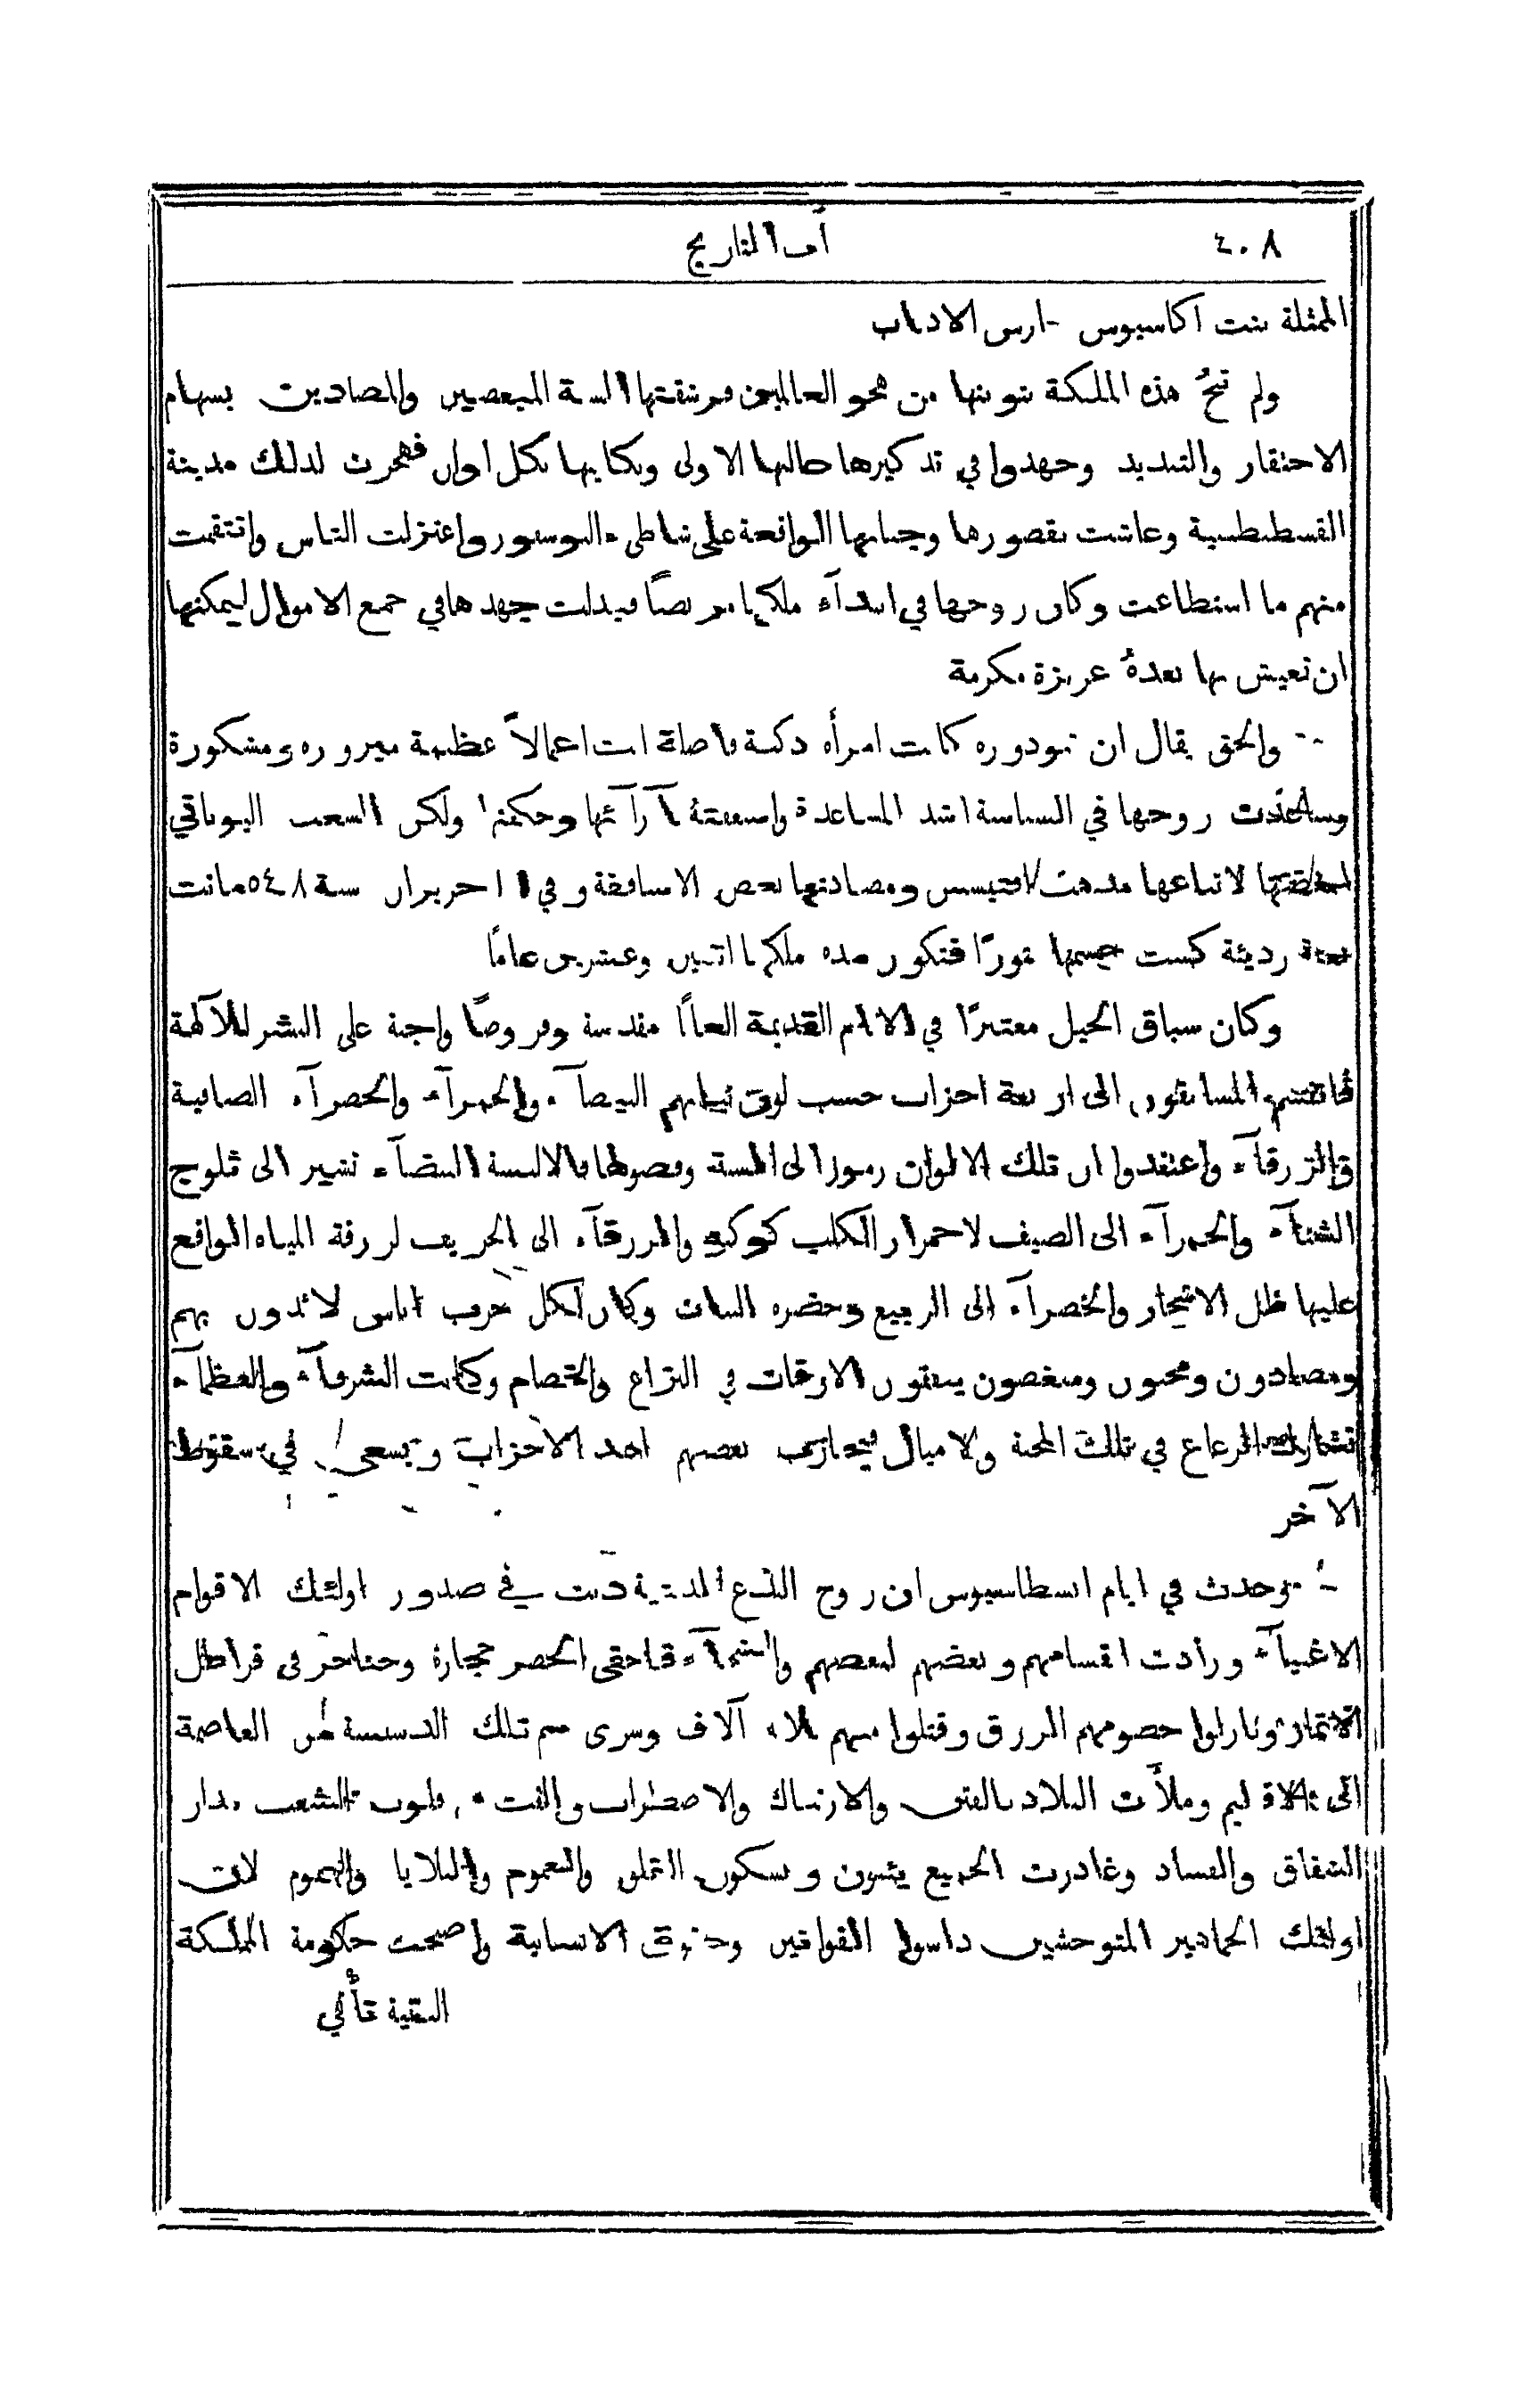 ٤٠٨ التاريخ
الممثلة بنت اكاسيوس حارس الادباب
ولم تنجُ هذه الملكة بتوبتها من هجو العالمين فرشقتها السنة المبغضين والمضادين بسهام
الاحتقار والتنديد وجهدوا في تذكيرها حالتها الاولى ونكايتها بكل اوان فهجرت لذلك مدينة
القسطنطينية وعاشت بقصورها وجناتها الواقعة على شاطىء البوسفور واعتزلت الناس وانتقمت
منهم ما استطاعت وكان روجها في ابتدآء ملكها مريضًا فبذلت جهدها في جمع الاموال ليمكنها
ان تعيش بها بعدهُ عزيزة مكرمة
والحق يقال ان تيودوره كانت امرأة ذكية فاضلة اتت اعمالاً عظيمة مبرورة ومشكورة
وساعدت روحها في السياسة اشد المساعدة واسعفتهُ بآرآئها وحكمتها ولكن الشعب اليوناني
لاتباعها مذهب افتيشس ومضادتها بعض الاساقفة وفي ١١ حزيران سنة ٥٤٨ ماتت
رديئة كست جسمها بثورًا فتكون مدة ملكها اثنين وعشرين عامًا
وكان سباق الخيل معتبرًا في الايام القديمة العابًا مقدسة وفروضًا واجبة على البشر للآلهة
فانقسم المسابقون الى اربعة احزاب حسب لون ثيابهم البيضآء والحمرآء والخضرآء الصافية
والزرقآء واعتقدوا ان تلك الالوان رموز الى السنة وفصولها فالالبسة البيضآء تشير الى ثلوج
الشتآء والحمرآء الى الصيف لاحمرار الكلب كوكبه والزرقآء الى الخريف لزرقة المياه الواقع
عليها ظل الاشجار والخضرآء الى الربيع وخضرة النبات وكان لكل حزب اناس لائذون بهم
ومضادون ومحبون ومبغضون ينفقون الاوقات في النزاع والخصام وكانت الشرفآء والعظمآء
تشارك الرعاع في تلك المحنة والاميال فيحازب بعضهم احد الاحزاب ويسعى في سقوط
الآخر
وحدث في ايام انسطاسيوس ان روح البدع الدينية دبت في صدور اولئك الاقوام
الاغبيآء وزادت انقسامهم وبغضهم لبعضهم والشحنآء فاخفى الخضر حجارة وخناجر في قراطل
الاثمار ونازلوا خصومهم الزرق وقتلوا منهم ثلاثة آلاف وسرى سم تلك الدسيسة من العاصمة
الى الاقاليم وملأت البلاد بالفتن والارتباك والاضطراب والقت في قلوب الشعب بذار
الشقاق والفساد وغادرت الجميع يئنون ويشكون القلق والغموم والبلايا والهموم لان
اولئك الجماهير المتوحشين داسوا القوانين وحقوق الانسانية واصبحت حكومة المملكة
البقية تأتي